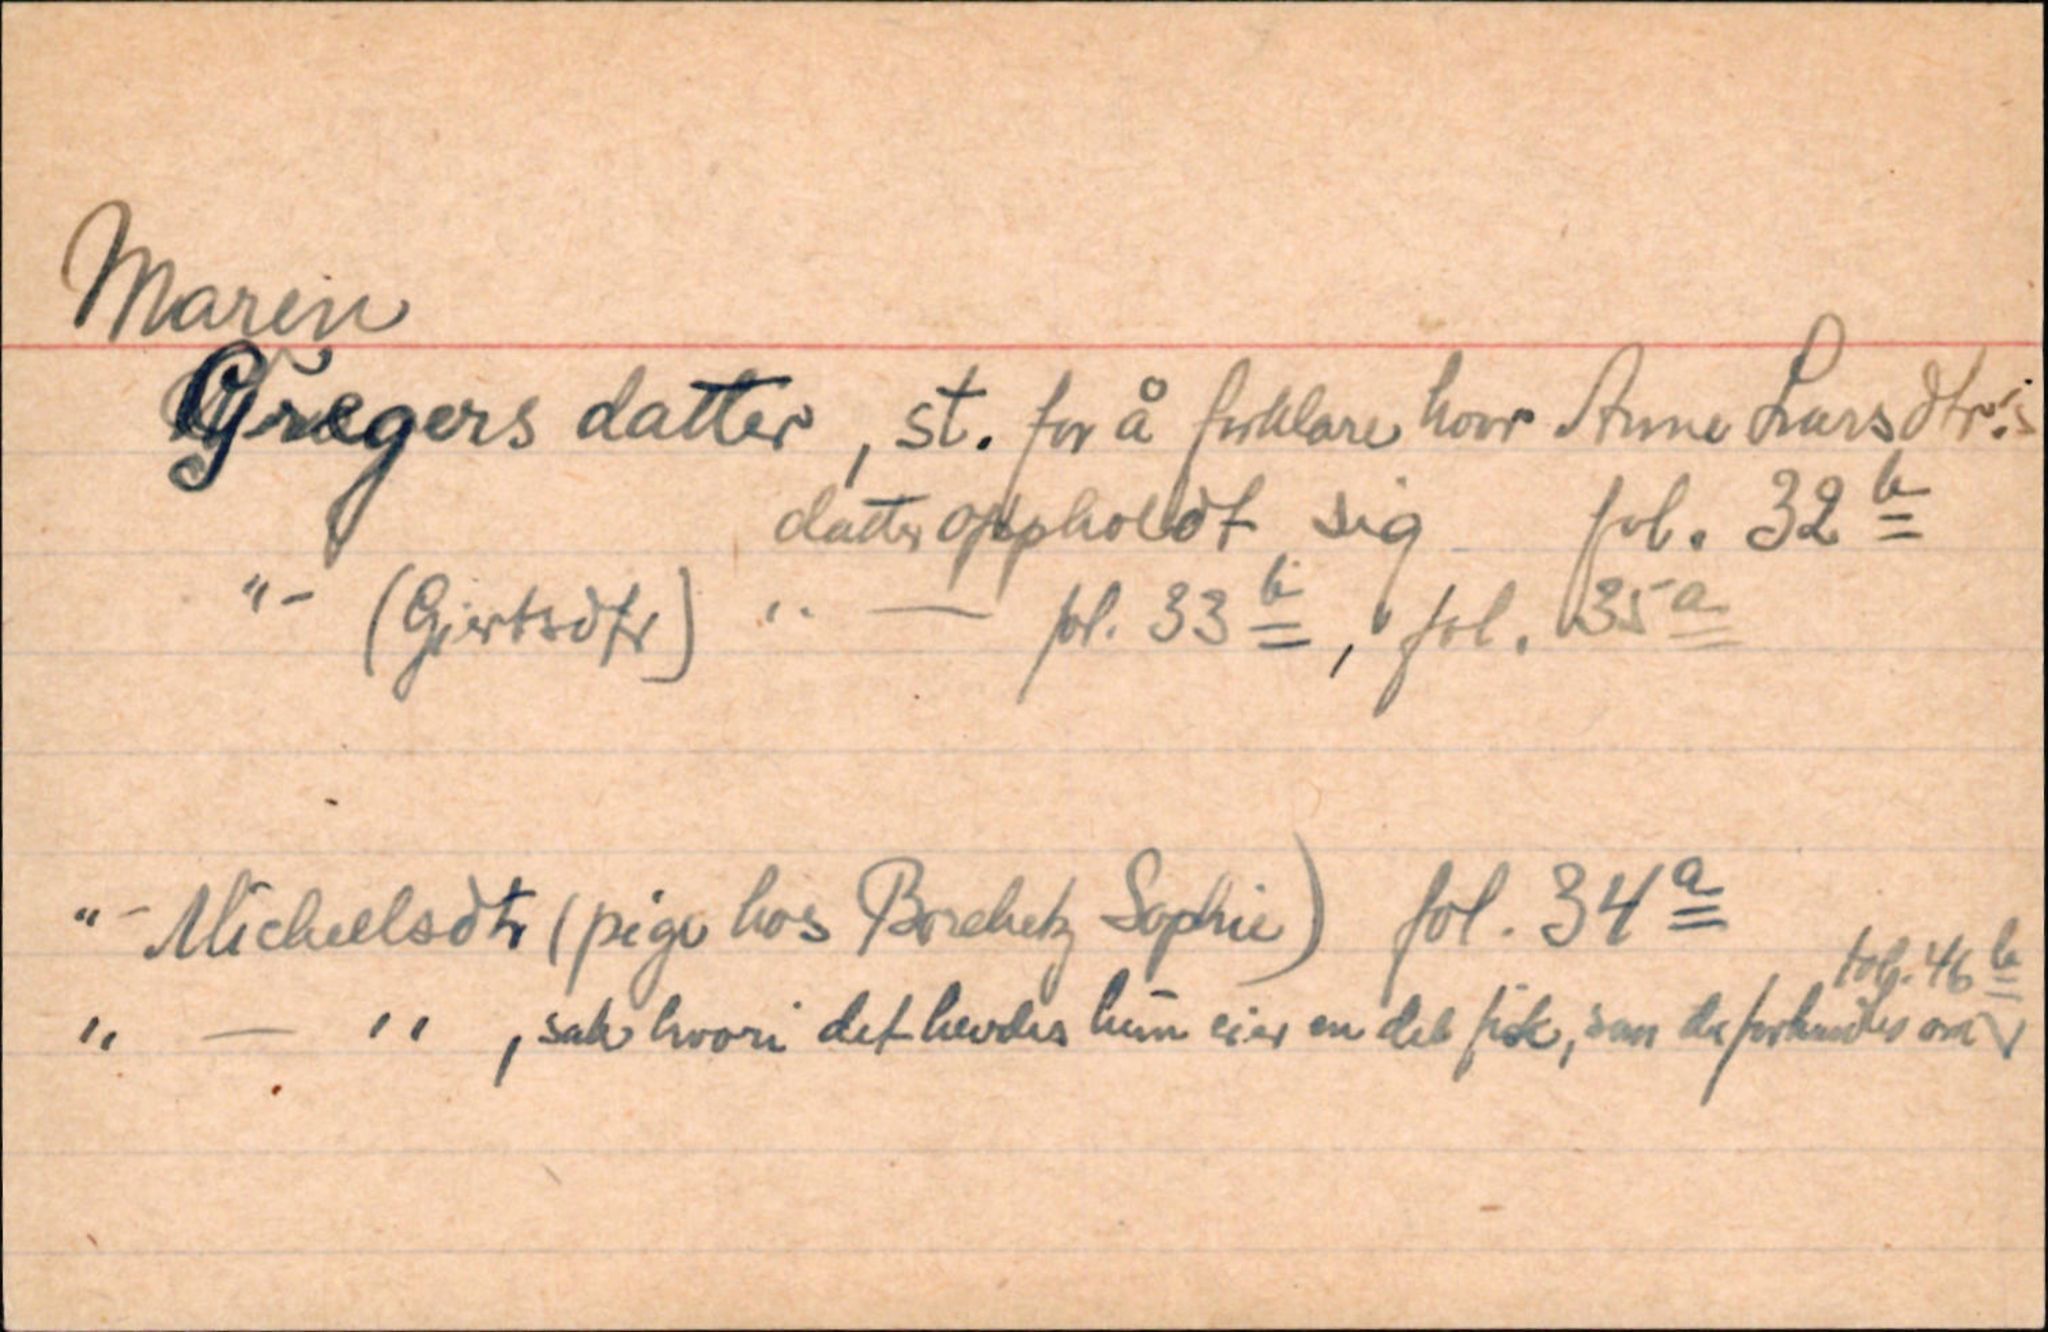 Maren
Gregers datter, st. for å forklare hvor Anne Larsdtr.'s
datter oppholdt sig fol. 32 b
"- (Giertsdtr) " — fol. 33 b, fol. 35 a
"- Michelsdtr (pige hos Borchetz Sophie) fol. 34 a
fol. 46 b
" — " , sak hvori det hevdes hun eier en del fisk, som der forhandles om